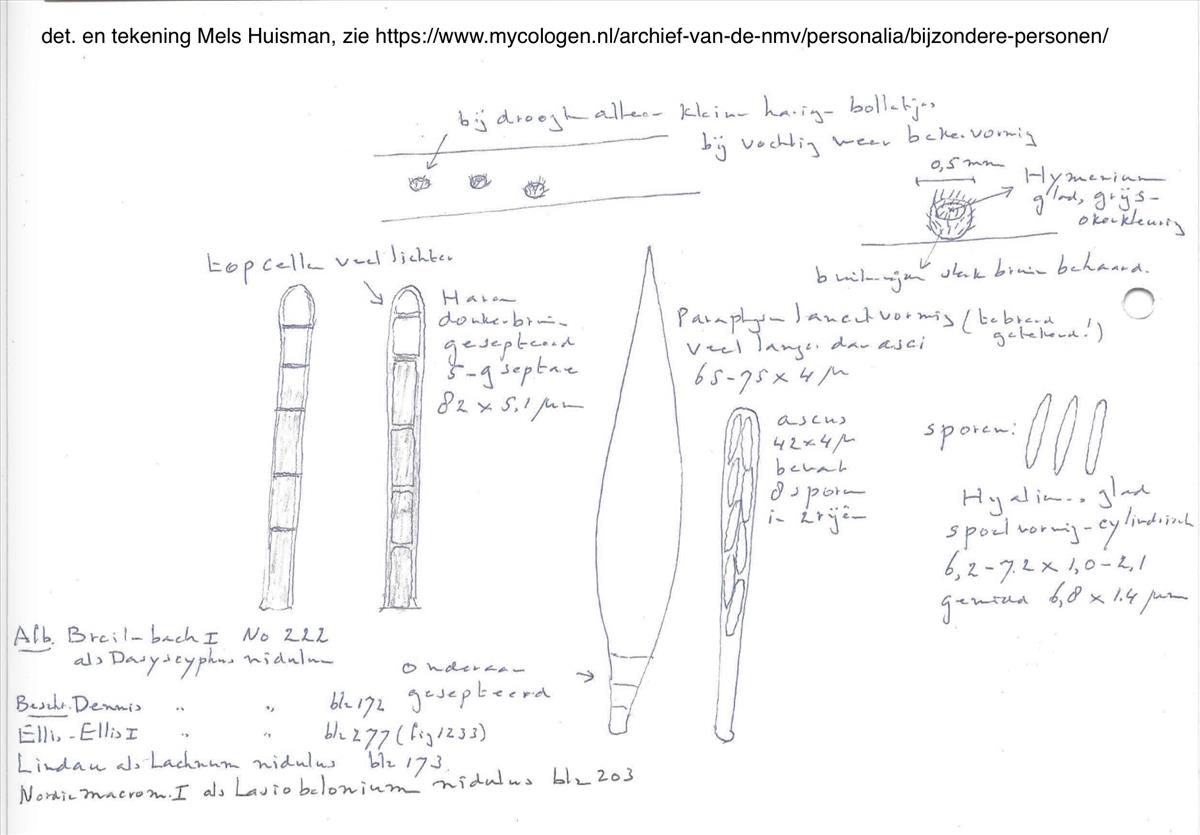 det. en tekening Mels Huisman, zie https://www.mycologen.nl/archief-van-de-nmv/personalia/bijzondere-personen/
bij droogte alleen kleine harige bolletjes
bij vochtig weer bekervormig
0,5 mm
Hymenium
glad, grijs-
okerkleurig
buitenzijde sterk bruin behaard.
topcellen veel lichter
Haren
donkerbruin
gesepteerd
5-9 septae
82 x 5,1 µm
Parafysen lancetvormig (te breed
getekend!)
veel langer dan asci
65-75 x 4 µ
ascus
42x4 µ
bevat
8 sporen
in 2 rijen
sporen:
Hyaline, glad
spoelvormig-cylindrisch
6,2-7.2 x 1,0-2,1
gemidd 6,8 x 1.4 µm
Afb. Breitenbach I No 222
als Dasyscyphus nidulus
onderaan
gesepteerd
Beschr. Dennis " " blz 172
Ellis-Ellis I " " blz 277 (fig 1233)
Lindau als Lachnum nidulus blz 173
Nordic macrom. I als Lasiobelonium nidulus blz 203